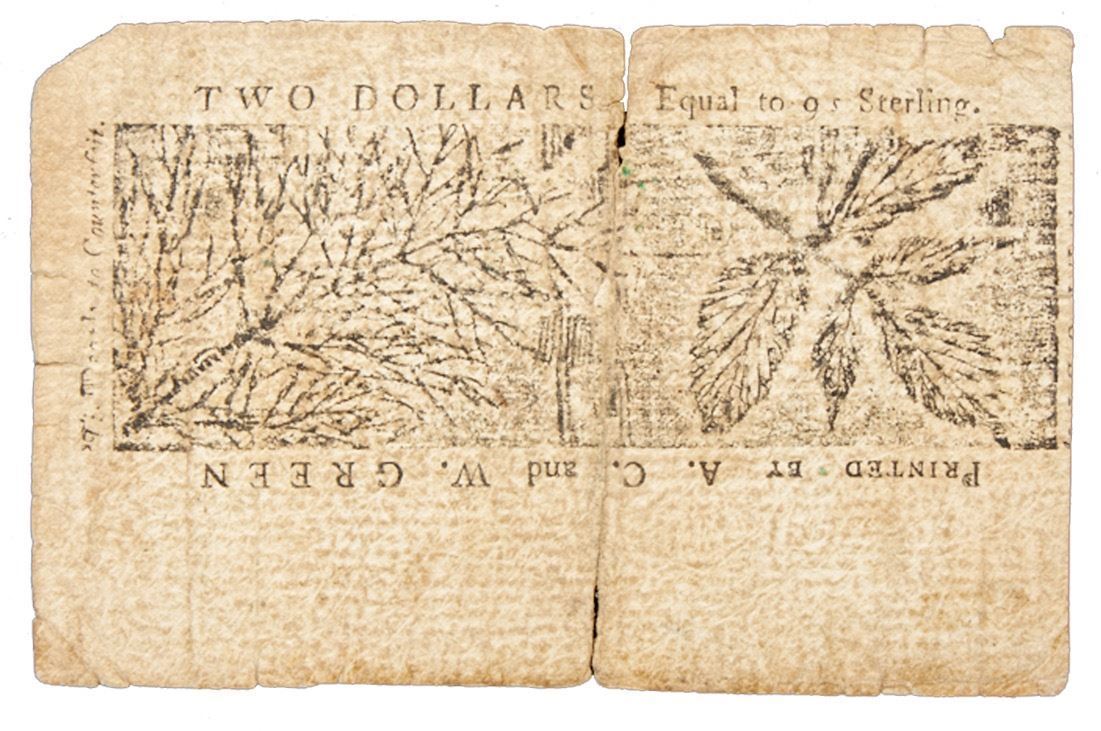 TWO DOLLARS Equal to 9s Sterling.
'Tis Death to Counterfeit.
PRINTED BY A. C. and W. GREEN